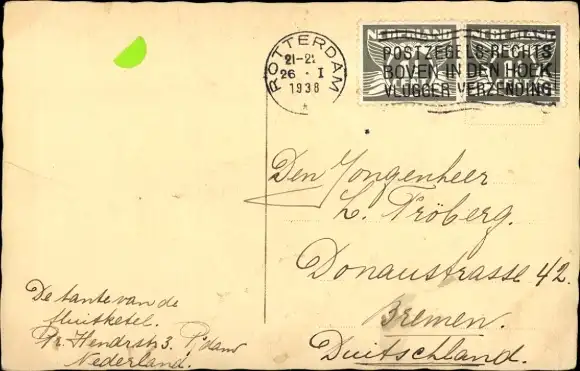 ROTTERDAM
21-2
26 . I
1938
NEDERLAND NEDERLAND
POSTZEGELS RECHTS
BOVEN IN DEN HOEK
VLUGGER VERZENDING
Den Jongenheer
L. Fröberg.
Donaustrasse 42.
Bremen.
Duitschland.
De tante van de
fluitketel.
Pr. Hendrstr 3. R'dam
Nederland.